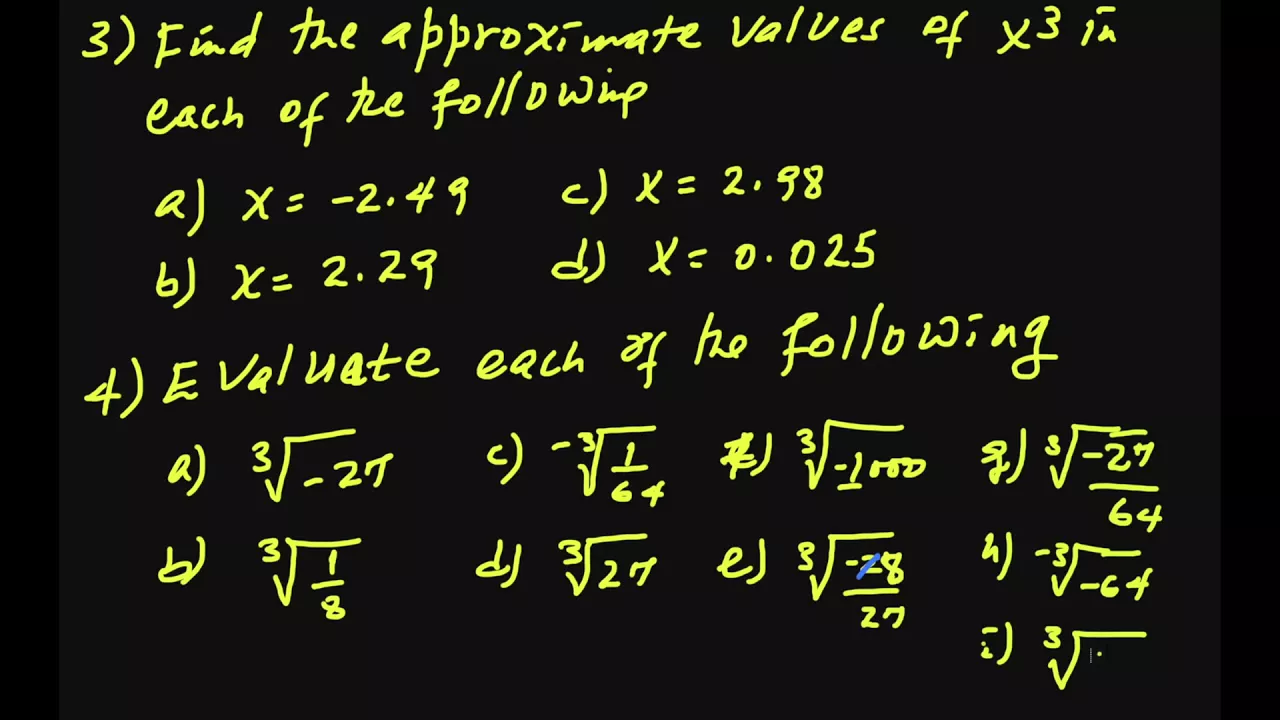 3) Find the approximate values of x³ in
each of the following
a) x = -2.49 c) x = 2.98
b) x = 2.29 d) x = 0.025
4) Evaluate each of the following
a) ∛-27 c) -∛(1/64) f) ∛-1000 g) ∛(-27/64)
b) ∛(1/8) d) ∛27 e) ∛(-8/27) h) -∛-64
i) ∛